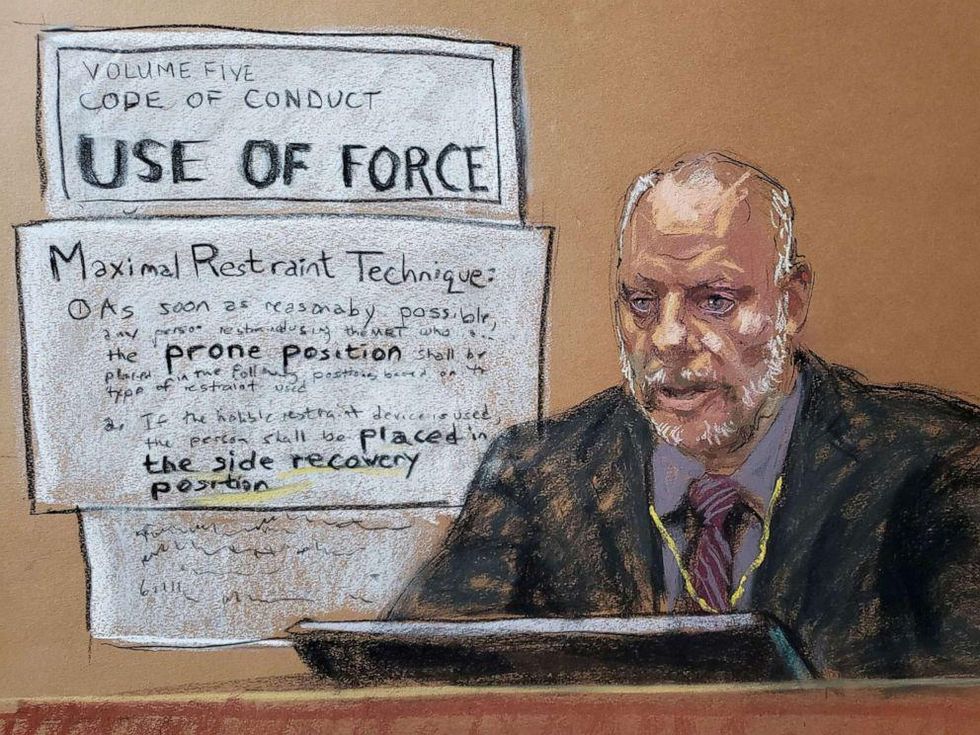 VOLUME FIVE
CODE OF CONDUCT
USE OF FORCE
Maximal Restraint Technique:
① As soon as reasonaby possible,
any person using the MRT who
the prone position shall be
placed in the following positions based on
type of restraint used
2. If the hobble restraint device is used,
the person shall be placed in
the side recovery
position